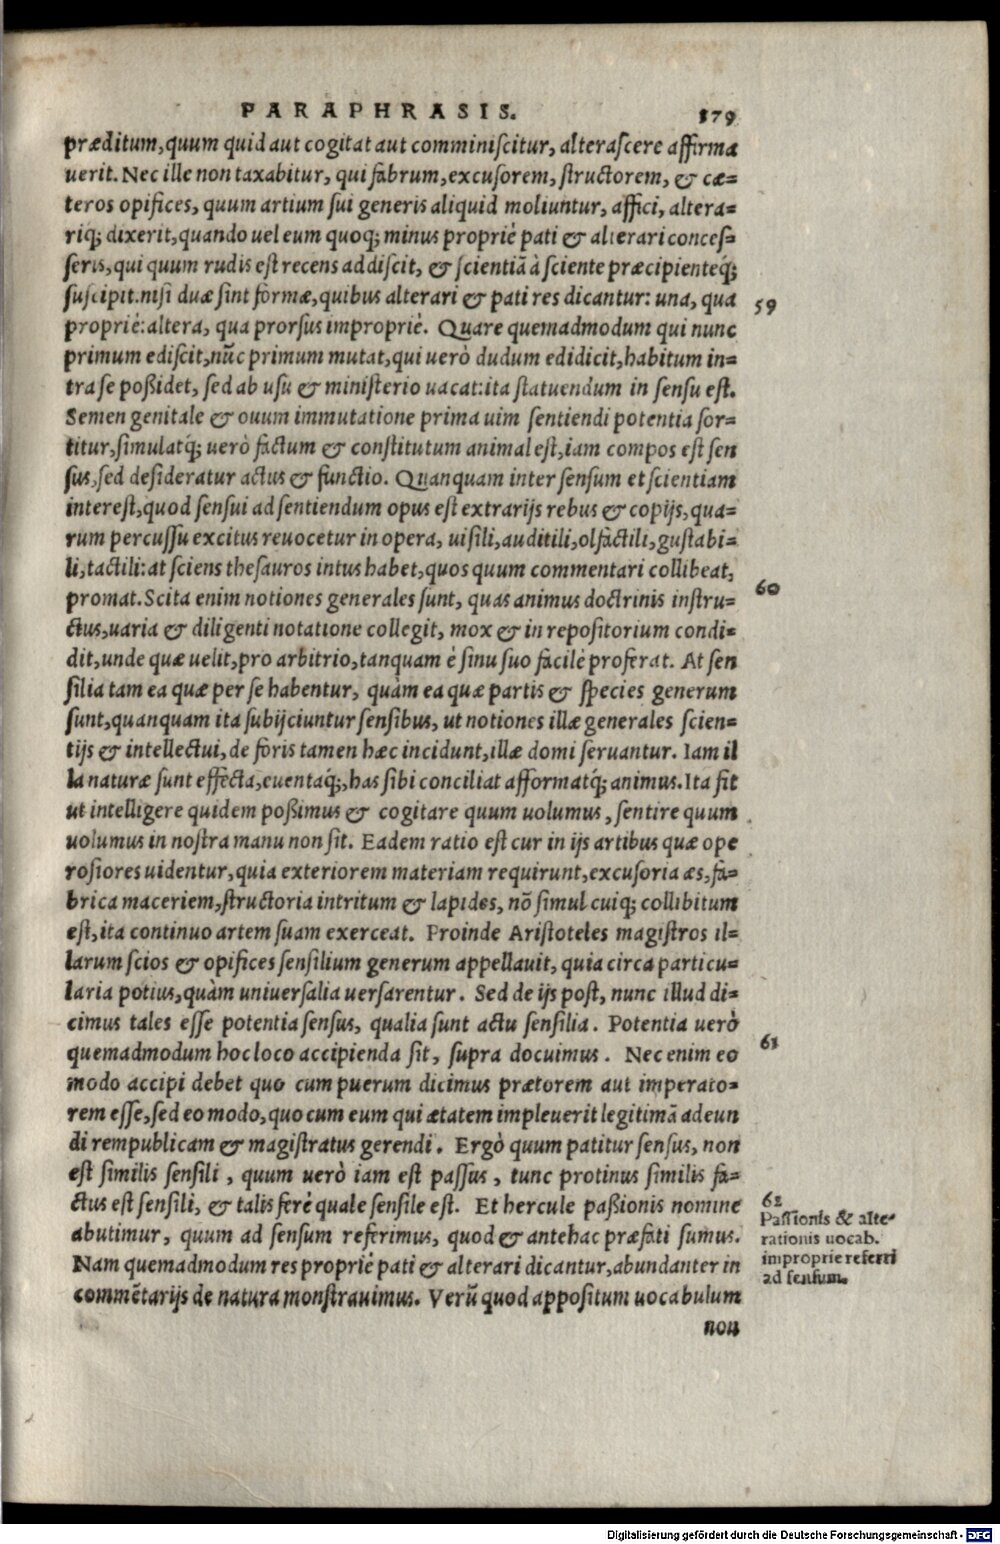 PARAPHRASIS. 179
præditum, quum quid aut cogitat aut comminiscitur, alterascere affirma
uerit. Nec ille non taxabitur, qui fabrum, excusorem, structorem, & cæ=
teros opifices, quum artium sui generis aliquid moliuntur, affici, altera=
riq; dixerit, quando uel eum quoq; minus propriè pati & alterari conces=
seris, qui quum rudis est recens addiscit, & scientiã à sciente præcipienteq́;
suscipit. nisi duæ sint formæ, quibus alterari & pati res dicantur: una, qua
propriè: altera, qua prorsus impropriè. Quare quemadmodum qui nunc
primum ediscit, nũc primum mutat, qui uerò dudum edidicit, habitum in=
tra se poßidet, sed ab usu & ministerio uacat: ita statuendum in sensu est.
Semen genitale & ouum immutatione prima uim sentiendi potentia sor=
titur, simulatq́; uerò factum & constitutum animal est, iam compos est sen
sus, sed desideratur actus & functio. Quanquam inter sensum et scientiam
interest, quod sensui ad sentiendum opus est extrarijs rebus & copijs, qua=
rum percussu excitus reuocetur in opera, uisili, auditili, olfactili, gustabi=
li, tactili: at sciens thesauros intus habet, quos quum commentari collibeat,
promat. Scita enim notiones generales sunt, quas animus doctrinis instru=
ctus, uaria & diligenti notatione collegit, mox & in repositorium condi=
dit, unde quæ uelit, pro arbitrio, tanquam è sinu suo facilè proferat. At sen
silia tam ea quæ per se habentur, quàm ea quæ partis & species generum
sunt, quanquam ita subijciuntur sensibus, ut notiones illæ generales scien=
tijs & intellectui, de foris tamen hæc incidunt, illæ domi seruantur. Iam il
la naturæ sunt effecta, euentaq́;, has sibi conciliat afformatq́; animus. Ita fit
ut intelligere quidem poßimus & cogitare quum uolumus, sentire quum
uolumus in nostra manu non sit. Eadem ratio est cur in ijs artibus quæ ope
rosiores uidentur, quia exteriorem materiam requirunt, excusoria æs, fa=
brica maceriem, structoria intritum & lapides, nõ simul cuiq; collibitum
est, ita continuo artem suam exerceat. Proinde Aristoteles magistros il=
larum scios & opifices sensilium generum appellauit, quia circa particu=
laria potius, quàm uniuersalia uersarentur. Sed de ijs post, nunc illud di=
cimus tales esse potentia sensus, qualia sunt actu sensilia. Potentia uerò
quemadmodum hoc loco accipienda sit, supra docuimus. Nec enim eo
modo accipi debet quo cum puerum dicimus prætorem aut imperato=
rem esse, sed eo modo, quo cum eum qui ætatem impleuerit legitimã adeun
di rempublicam & magistratus gerendi. Ergò quum patitur sensus, non
est similis sensili, quum uerò iam est passus, tunc protinus similis fa=
ctus est sensili, & talis ferè quale sensile est. Et hercule paßionis nomine
abutimur, quum ad sensum referimus, quod & antehac præfati sumus.
Nam quemadmodum res propriè pati & alterari dicantur, abundanter in
commẽtarijs de natura monstrauimus. Verũ quod appositum uocabulum
non
59
60
61
62
Passionis & alte=
rationis uocab.
improprie referri
ad sensum.
Digitalisierung gefördert durch die Deutsche Forschungsgemeinschaft - DFG